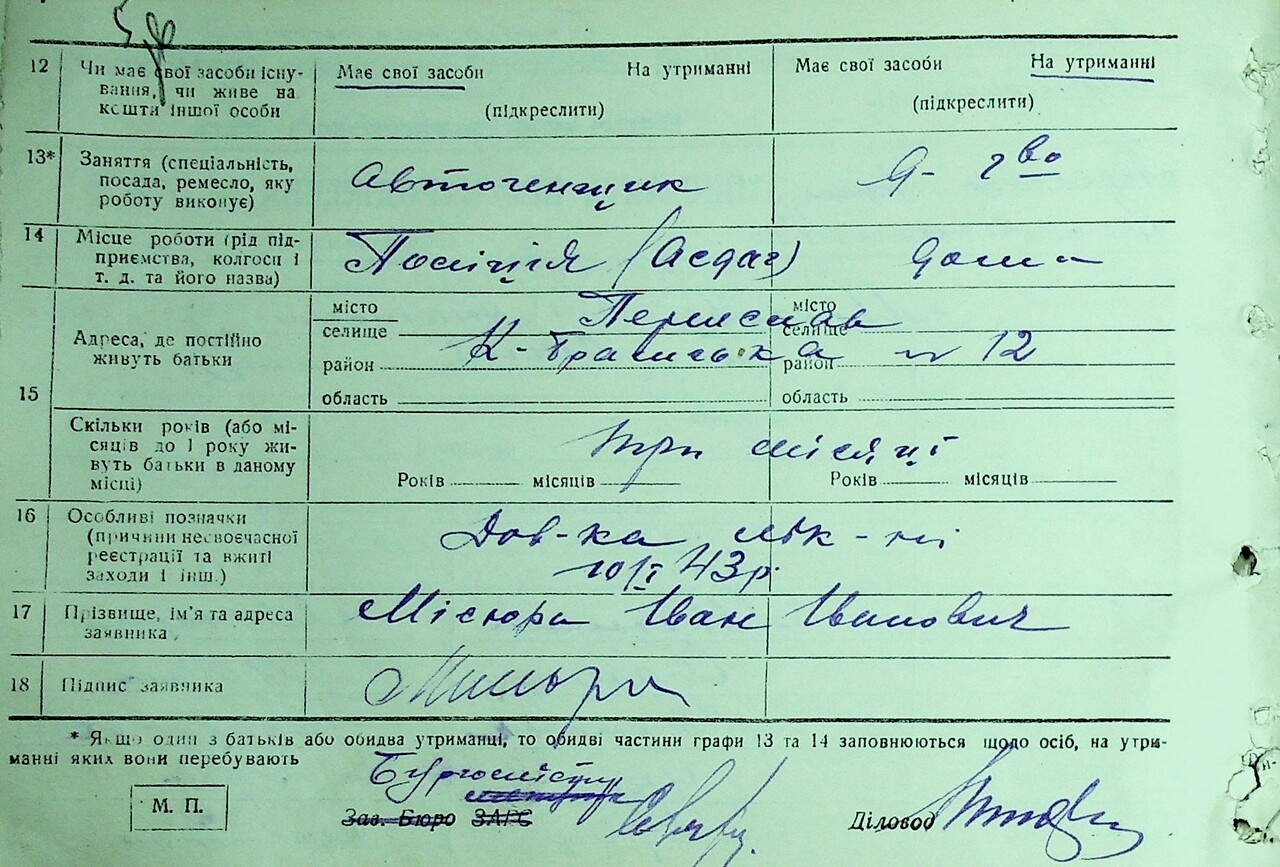 12 Чи має свої засоби існу-
вання, чи живе на
кошти іншої особи
Має свої засоби На утриманні
(підкреслити)
Має свої засоби На утриманні
(підкреслити)
13* Заняття (спеціальність,
посада, ремесло, яку
роботу виконує)
Д-гво
14 Місце роботи (рід під-
приємства, колгоси і
т. д. та його назва)
Поліція
дома
15 Адреса, де постійно
живуть батьки
місто Переяслав місто
селище селище
район № 12 район
область область
Скільки років (або мі-
сяців до 1 року жи-
вуть батьки в даному
місці)
три місяці
Років місяців Років місяців
16 Особливі позначки
(причини несвоєчасної
реєстрації та вжиті
заходи і інш.)
Дов-ка лік-ні
10/I 43р.
17 Прізвище, ім'я та адреса
заявника
Місюра Іван Іванович
18 Підпис заявника
* Якщо один з батьків або обидва утриманці, то обидві частини графи 13 та 14 заповнюються щодо осіб, на утри-
манні яких вони перебувають
Бургомістр
М. П. Зав. Бюро ЗАГС Діловод